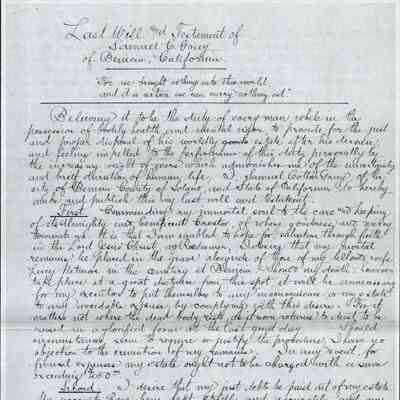 Last Will and Testament of
Samuel C. Gray
of Benicia, California.
"For we brought nothing into this world,
and it is certain we can carry nothing out."
Believing it to be the duty of every man, while in the
possession of bodily health and mental vigor to provide for the just
and proper disposal of his worldly goods estate after his decease,
and feeling impelled to the performance of this duty personally by
the increasing weight of years which admonishes me of the uncertainty
and brief duration of human life, I, Samuel Cotton Gray, of the
city of Benicia County of Solano, and State of California do hereby
make and publish this my last will and testament.
First. Commending my immortal soul to the care and keeping
of its Almighty and beneficent Creator, of whose goodness and mercy
it is that I am enabled to hope for salvation through faith
in the Lord Jesus Christ, I desire that my mortal
remains be placed in the grave alongside of those of my beloved wife
in the cemetery at Benicia. Should my death however
take place at a great distance from this spot, it will be unnecessary
for my executor to put themselves to any inconvenience or my estate
to any avoidable expense by complying with this desire. For it
matters not where the dead body rests, and soon returns to dust, to be
raised in a glorified form at the last great day. Should
circumstances seem to require or justify the procedure I have no
objection to the cremation of my remains. In any event, for
funeral expenses my estate ought not to be charged with a sum
exceeding $250
Second. I desire that my just debts be paid out of my estate